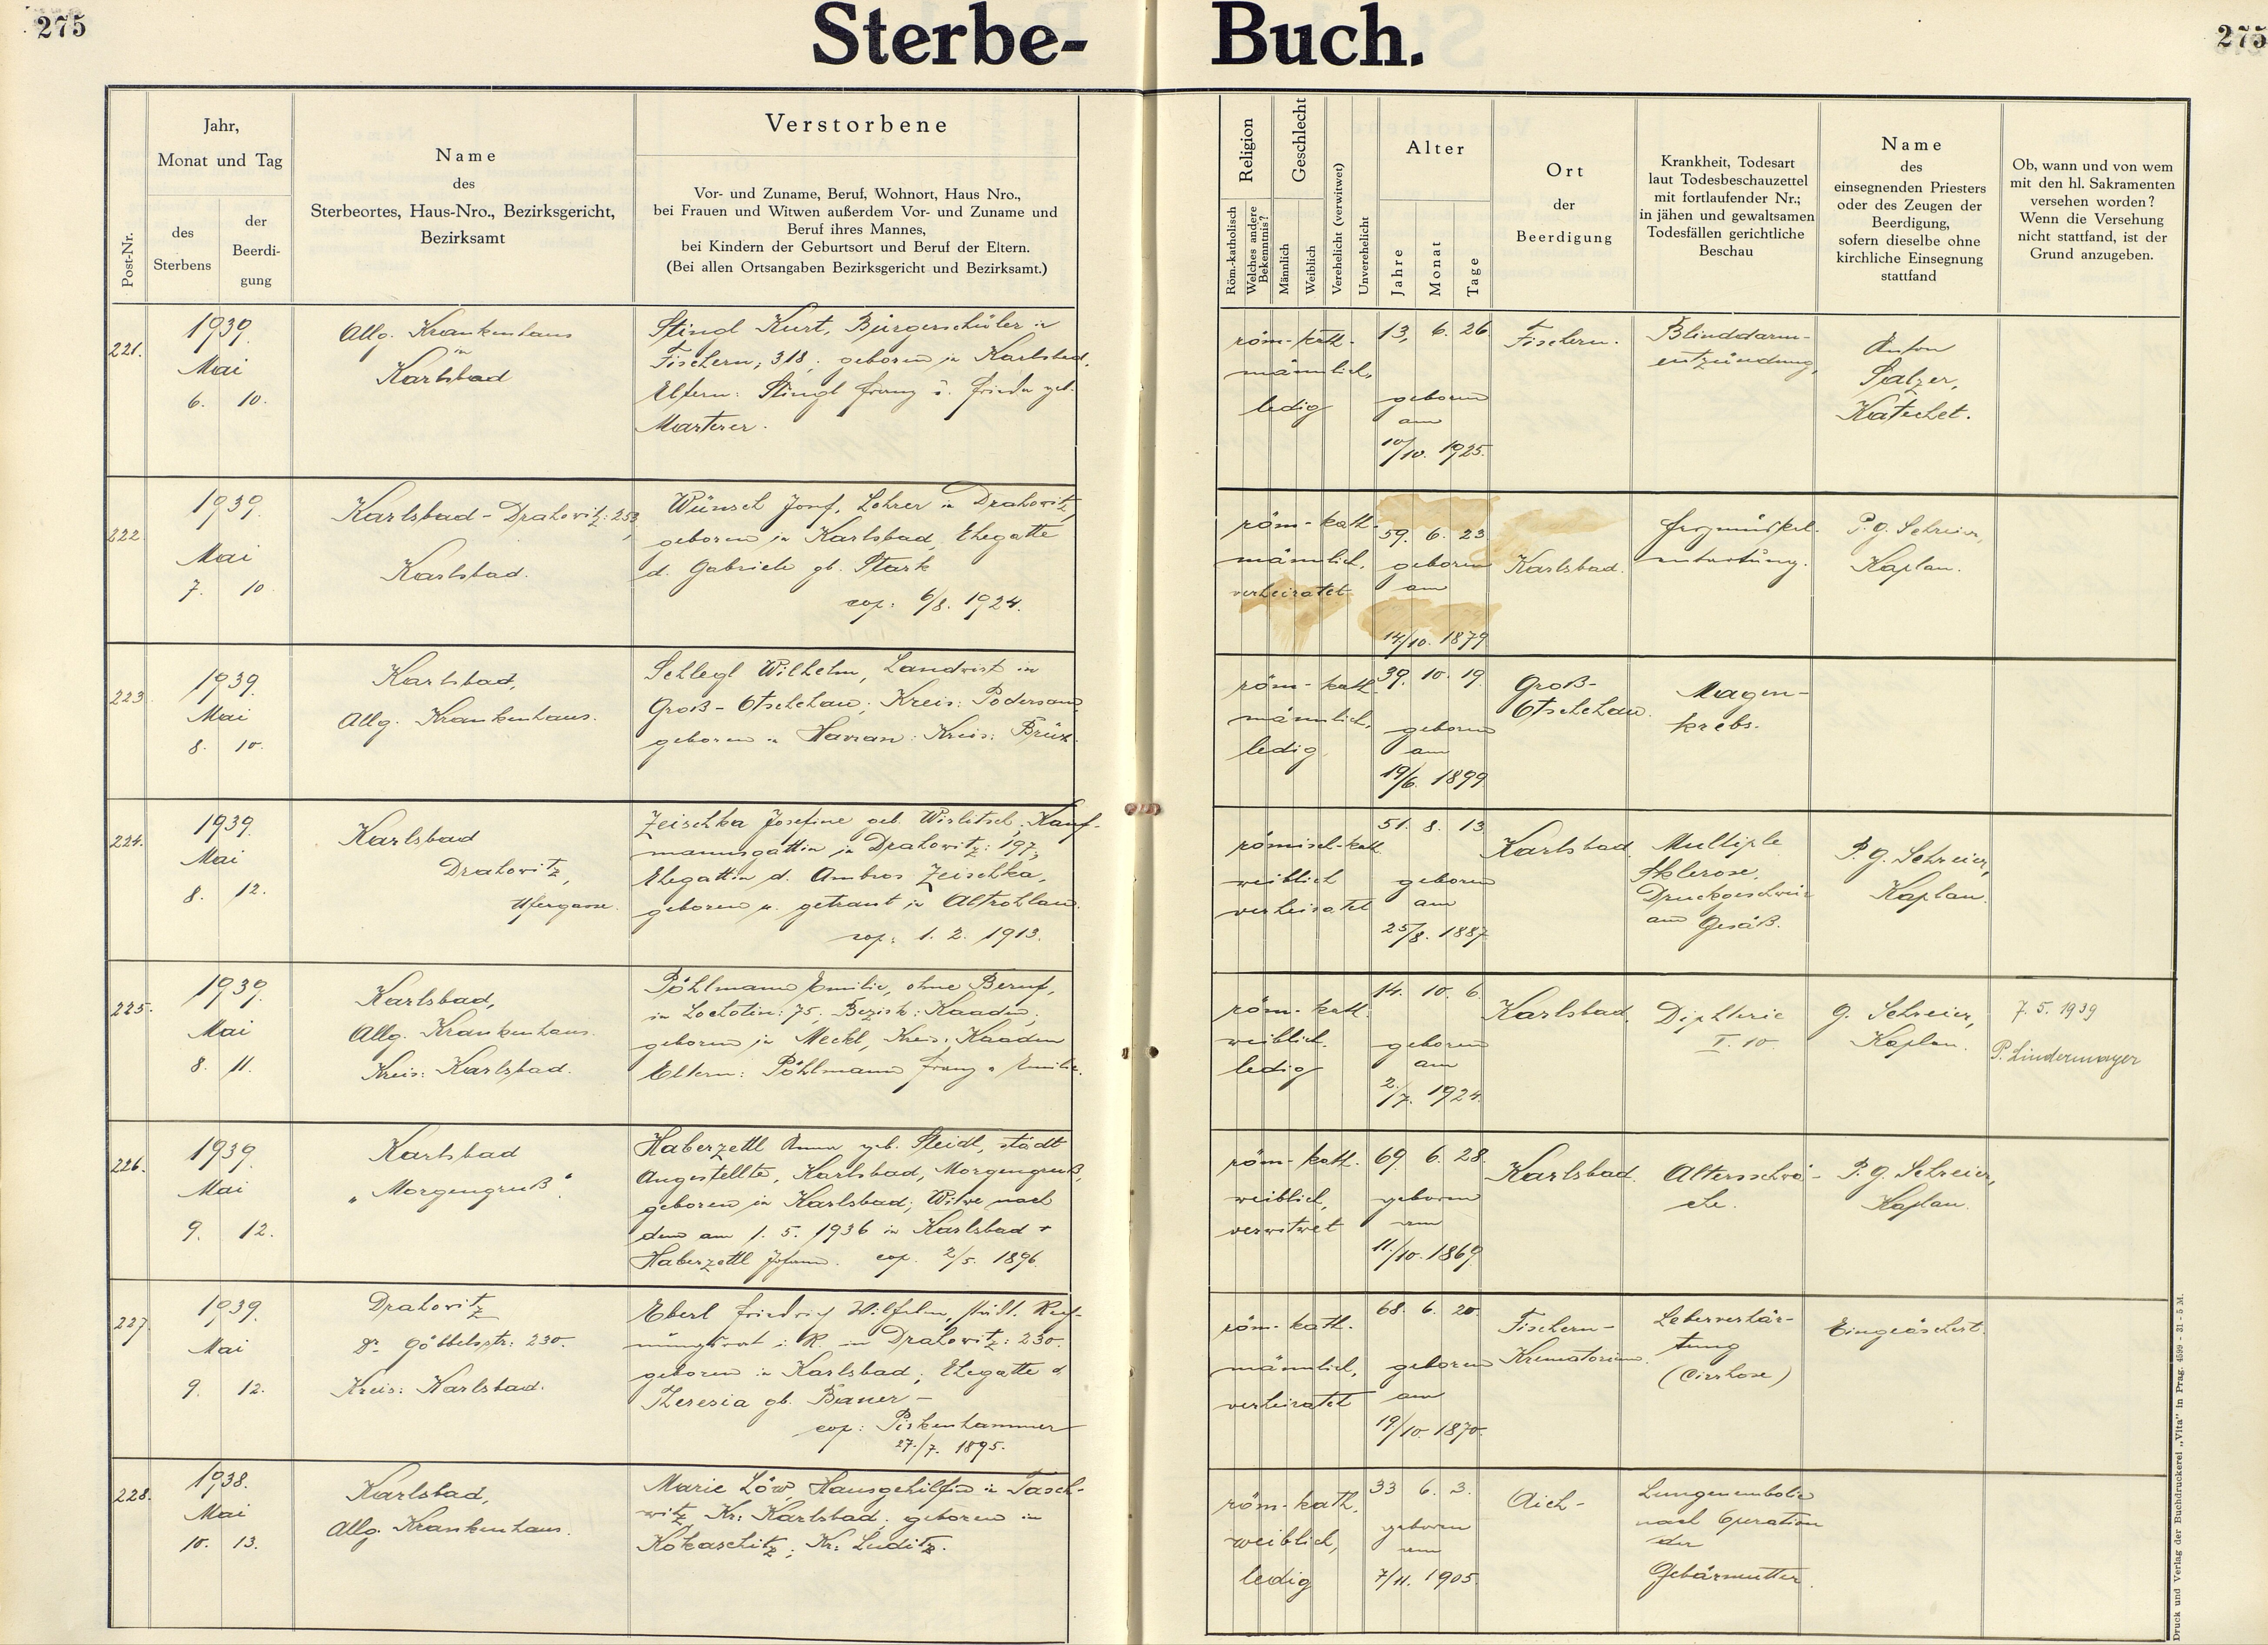 275
Sterbe-
Buch.
275
Post-Nr.
Jahr,
Monat und Tag
des
Sterbens
der
Beerdi-
gung
Name
des
Sterbeortes, Haus-Nro., Bezirksgericht,
Bezirksamt
Verstorbene
Vor- und Zuname, Beruf, Wohnort, Haus Nro.,
bei Frauen und Witwen außerdem Vor- und Zuname und
Beruf ihres Mannes,
bei Kindern der Geburtsort und Beruf der Eltern.
(Bei allen Ortsangaben Bezirksgericht und Bezirksamt.)
Religion
Röm.-katholisch
Welches andere
Bekenntnis?
Geschlecht
Männlich
Weiblich
Verehelicht (verwitwet)
Unverehelicht
Alter
Jahre
Monat
Tage
Ort
der
Beerdigung
Krankheit, Todesart
laut Todesbeschauzettel
mit fortlaufender Nr.;
in jähen und gewaltsamen
Todesfällen gerichtliche
Beschau
Name
des
einsegnenden Priesters
oder des Zeugen der
Beerdigung,
sofern dieselbe ohne
kirchliche Einsegnung
stattfand
Ob, wann und von wem
mit den hl. Sakramenten
versehen worden?
Wenn die Versehung
nicht stattfand, ist der
Grund anzugeben.
221.
1939.
Mai
6. 10.
Allg. Krankenhaus
in
Karlsbad
Stingl Kurt, Bürgerschüler in
Fischern; 318; geboren in Karlsbad,
Eltern: Stingl Franz u. Frieda geb.
Marterer.
röm-kath.
männlich,
ledig
13, 6. 26
geboren
am
10/10. 1925.
Fischern.
Blinddarm-
entzündung,
Anton
Salzer,
Katechet.
222
1939.
Mai
7. 10
Karlsbad-Drahovitz: 253,
Karlsbad.
Wünsch Josef, Lehrer in Drahovitz,
geboren in Karlsbad, Ehegatte
d. Gabriele gb. Stark
cop: 6/8. 1924.
röm-kath.
männlich,
verheiratet
59. 6. 23
geboren
am
14/10. 1879
Karlsbad.
Herzmuskel-
entartung.
P. G. Schreier,
Kaplan.
223
1939.
Mai
8. 10.
Karlsbad,
Allg. Krankenhaus.
Schlegl Wilhelm, Landwirt in
Groß-Otschehau; Kreis: Podersam,
geboren in Havran: Kreis: Brüx.
röm-kath.
männlich,
ledig
39. 10. 19.
geboren
am
19/6. 1899
Groß-
Otschehau.
Magen-
krebs.
224.
1939.
Mai
8. 12.
Karlsbad
Drahovitz,
Ufergasse.
Zeischka Josefine geb. Wislitsch, Kauf-
mannsgattin in Drahovitz: 197,
Ehegattin d. Ambros Zeischka,
geboren u. getraut in Altrohlau.
cop: 1. 2. 1913.
römisch-kath.
weiblich
verheiratet
51. 8. 13
geboren
am
25/8. 1887
Karlsbad.
Multiple
Sklerose,
Druckgeschwür
am Gesäß.
P. G. Schreier,
Kaplan
225.
1939.
Mai
8. 11.
Karlsbad,
Allg. Krankenhaus.
Kreis: Karlsbad.
Pöhlmann Emilie, ohne Beruf,
in Lochotin: 75, Bezirk: Kaaden,
geboren in Meckl, Kreis: Kaaden
Eltern: Pöhlmann Franz u. Emilie.
röm-kath.
weiblich.
ledig
14. 10. 6.
geboren
am
2./7. 1924.
Karlsbad.
Diphterie
I. 10.
G. Schreier,
Kaplan.
7. 5. 1939
P. Lindermayer
226.
1939.
Mai
9. 12.
Karlsbad
"Morgengruß".
Haberzettl Anna geb. Steidl, städt
Angestellte, Karlsbad, Morgengruß,
geboren in Karlsbad; Witwe nach
dem am 1. 5. 1936 in Karlsbad +
Haberzettl Johann. cop. 2/5. 1896.
röm-kath.
weiblich,
verwitwet
69 6. 28.
geboren
am
11./10. 1869.
Karlsbad.
Altersschwä-
che.
P. G. Schreier,
Kaplan.
227.
1939.
Mai
9. 12.
Drahovitz
Dr. Göbbelsstr: 230.
Kreis: Karlsbad.
Eberl Friedrich Wilhelm, städt. Rech-
nungsrat i. R. in Drahovitz: 230.
geboren in Karlsbad; Ehegatte d
Theresia gb. Bauer-
cop: Pirkenhammer
27./7. 1895.
röm-kath.
männlich,
verheiratet
68. 6. 20.
geboren
am
19/10. 1870.
Fischern-
Krematorium.
Leberverhär-
tung
(Cirrhose)
Eingeäschert.
228.
1938.
Mai
10. 13.
Karlsbad,
Allg. Krankenhaus.
Marie Löw, Hausgehilfin in Tasch-
witz, Kr: Karlsbad. geboren in
Kokaschitz; Kr: Luditz.
röm-kath.
weiblich,
ledig
33 6. 3.
geboren
am
7/11. 1905.
Aich-
Lungenembolie
nach Operation
der
Gebärmutter.
Druck und Verlag der Buchdruckerei „Vita" in Prag. 4599 - 31 - 5 M.